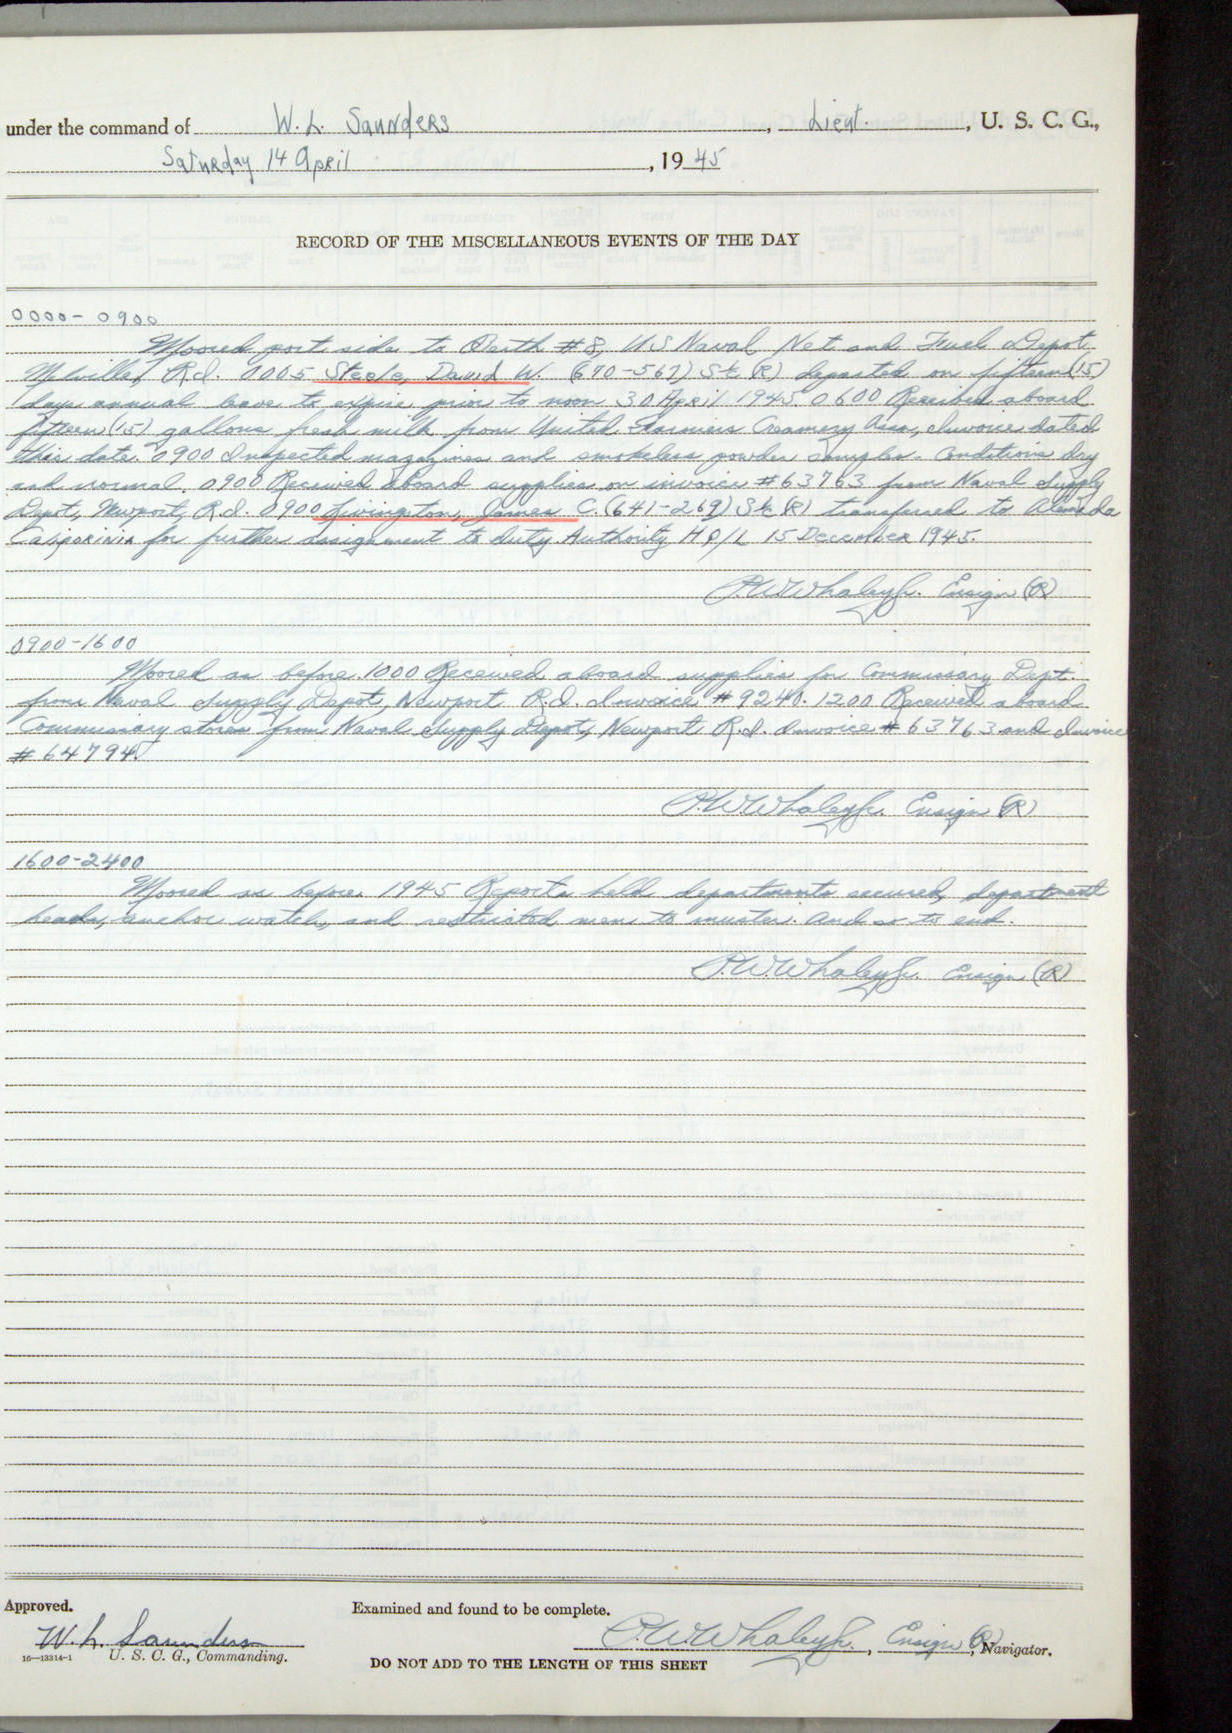 under the command of W. L. Saunders, Lieut., U. S. C. G.,
Saturday 14 April, 19 45
RECORD OF THE MISCELLANEOUS EVENTS OF THE DAY
0000-0900
Moored port side to Berth #8, US Naval Net and Fuel Depot
Melville, R.I. 0005 Steele, David W. (690-567) StM (R) departed on fifteen (15)
days annual leave to expire prior to noon 30 April 1945 0600 Received aboard
fifteen (15) gallons fresh milk from United Farmers Creamery Assn, Invoice dated
this date. 0900 Inspected magazines and smokeless powder samples. Conditions dry
and normal. 0900 Received aboard supplies on invoice #63763 from Naval Supply
Depot, Newport, R.I. 0900 Livingston, James C. (641-269) (R) transferred to Alameda
California for further assignment to duty Authority 15 December 1945.
P.W. Whaley Jr. Ensign (R)
0900-1600
Moored as before. 1000 Received aboard supplies for Commissary Dept.
from Naval Supply Depot, Newport R.I. Invoice #9240. 1200 Received aboard
Commissary stores from Naval Supply Depot, Newport R.I. Invoice #63763 and Invoice
#64794.
P.W. Whaley Jr. Ensign (R)
1600-2400
Moored as before. 1945 Reports held departments secured, department
heads, anchor watch, and restricted men to muster. And so to end.
P.W. Whaley Jr. Ensign (R)
Approved.
Examined and found to be complete.
W. L. Saunders
P.W. Whaley Jr., Ensign (R), Navigator.
16—13314-1 U. S. C. G., Commanding.
DO NOT ADD TO THE LENGTH OF THIS SHEET